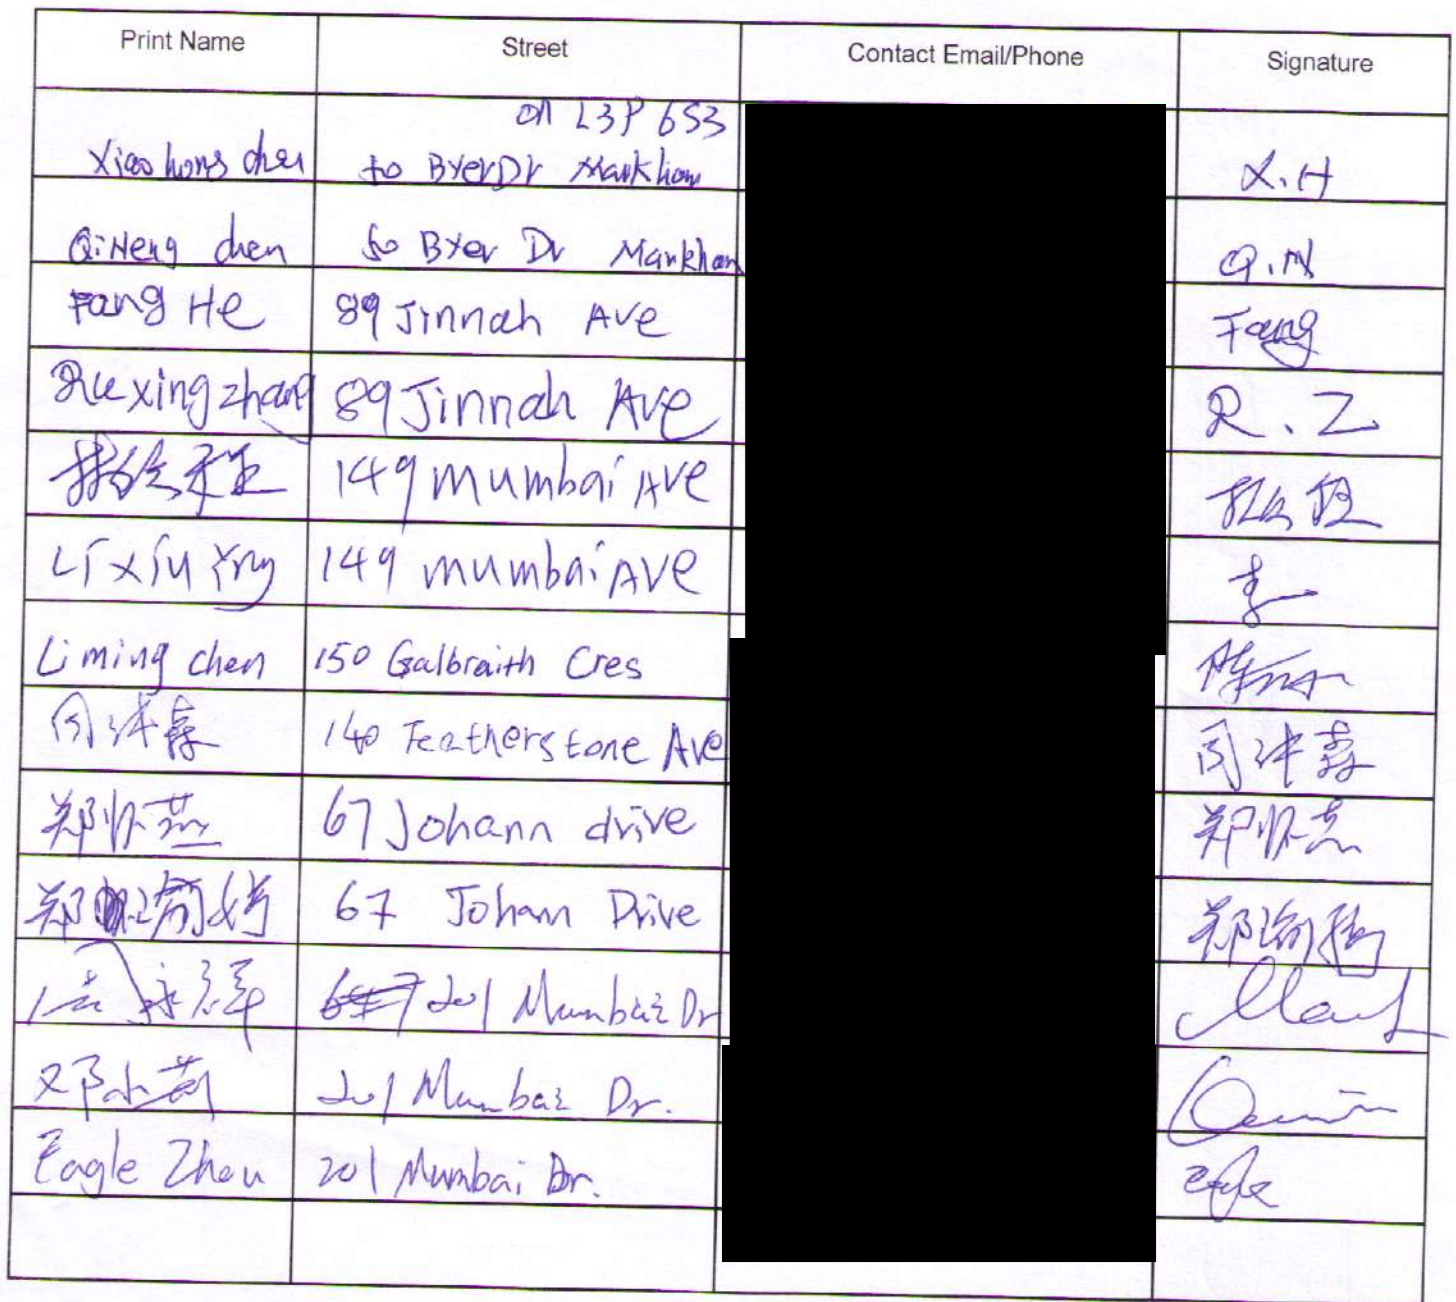 Print Name Street Contact Email/Phone Signature
on L3P 6S3
Xiaohong chen 50 Byer Dr Markham X.H
QiNeng chen 50 Byer Dr Markham Q.N
Fang He 89 Jinnah Ave Fang
Ruxing zhang 89 Jinnah Ave R.Z
149 mumbai Ave
Li xiu Ying 149 mumbai Ave 李
Liming chen 150 Galbraith Cres 陈
周 森 140 Featherstone Ave 周 森
郑怀燕 67 Johann drive 郑怀燕
郑瑜 67 Johann Drive 郑瑜
201 Mumbai Dr
邓小莉 201 Mumbai Dr.
Eagle Zhou 201 Mumbai Dr. Eagle